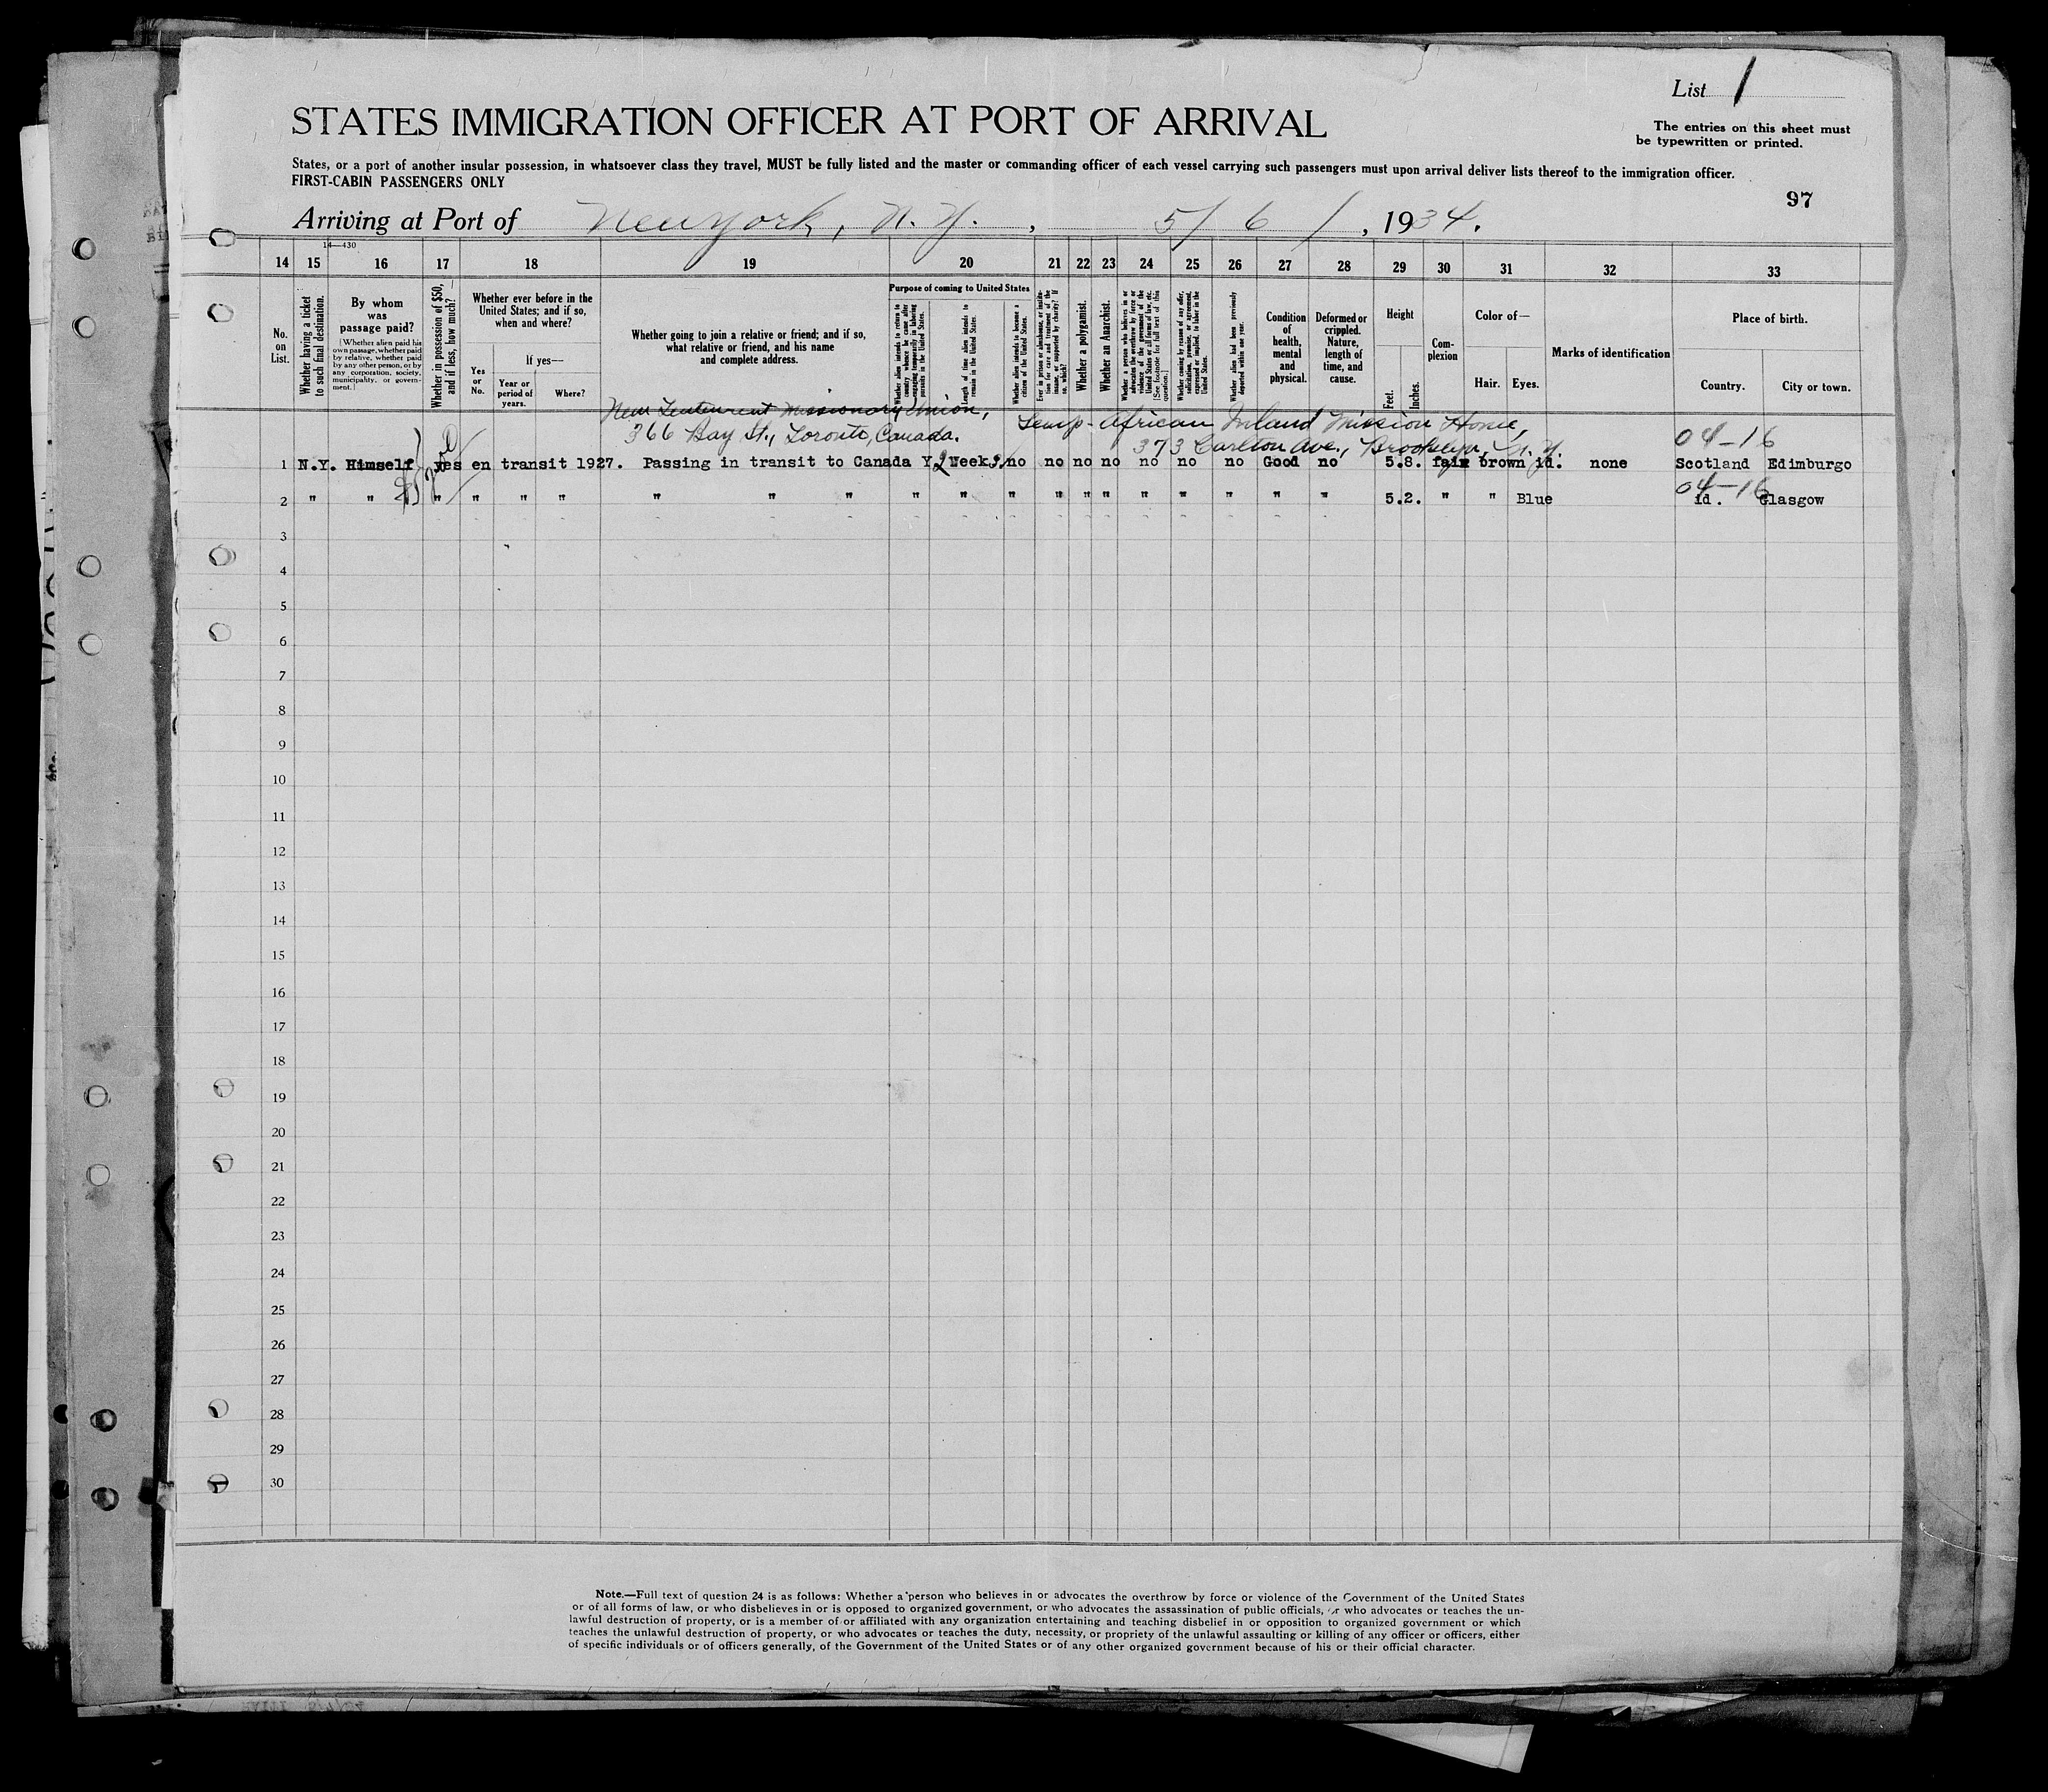 List 1
STATES IMMIGRATION OFFICER AT PORT OF ARRIVAL
The entries on this sheet must
be typewritten or printed.
States, or a port of another insular possession, in whatsoever class they travel, MUST be fully listed and the master or commanding officer of each vessel carrying such passengers must upon arrival deliver lists thereof to the immigration officer.
FIRST-CABIN PASSENGERS ONLY
97
Arriving at Port of New York, N. Y. , 5/ 6 / , 1934.
14—430
14 15 16 17 18 19 20 21 22 23 24 25 26 27 28 29 30 31 32 33
No. on List.
Whether having a ticket to such final destination.
By whom was passage paid?
[Whether alien paid his own passage, whether paid by relative, whether paid by any other person, or by any corporation, society, municipality, or government.]
Whether in possession of $50, and if less, how much?
Whether ever before in the United States; and if so, when and where?
Yes or No.
If yes—
Year or period of years.
Where?
Whether going to join a relative or friend; and if so, what relative or friend, and his name and complete address.
Purpose of coming to United States
Whether alien intends to return to country whence he came after engaging temporarily in laboring pursuits in the United States.
Length of time alien intends to remain in the United States.
Whether alien intends to become a citizen of the United States.
Ever in prison or almshouse, or institution for care and treatment of the insane, or supported by charity? If so, which?
Whether a polygamist.
Whether an Anarchist.
Whether a person who believes in or advocates the overthrow by force or violence of the government of the United States or all forms of law, etc. [See footnote for full text of this question.]
Whether coming by reason of any offer, solicitation, promise, or agreement, expressed or implied, to labor in the United States.
Whether alien had been previously deported within one year.
Condition of health, mental and physical.
Deformed or crippled. Nature, length of time, and cause.
Height
Feet. Inches.
Complexion
Color of—
Hair. Eyes.
Marks of identification
Place of birth.
Country. City or town.
Missionary Union,
366 Bay St., Toronto, Canada.
African Inland Mission Home,
373 Carlton Ave., Brooklyn, N. Y.
04-16
1 N.Y. Himself yes en transit 1927. Passing in transit to Canada Y 2 Weeks. no no no no no no no Good no 5.8. fair brown id. none Scotland Edimburgo
04-16
2 " " " " " " " " " " " " " " " " " " " " " 5.2. " " Blue id. Glasgow
3
4
5
6
7
8
9
10
11
12
13
14
15
16
17
18
19
20
21
22
23
24
25
26
27
28
29
30
Note.—Full text of question 24 is as follows: Whether a person who believes in or advocates the overthrow by force or violence of the Government of the United States
or of all forms of law, or who disbelieves in or is opposed to organized government, or who advocates the assassination of public officials, or who advocates or teaches the un-
lawful destruction of property, or is a member of or affiliated with any organization entertaining and teaching disbelief in or opposition to organized government or which
teaches the unlawful destruction of property, or who advocates or teaches the duty, necessity, or propriety of the unlawful assaulting or killing of any officer or officers, either
of specific individuals or of officers generally, of the Government of the United States or of any other organized government because of his or their official character.